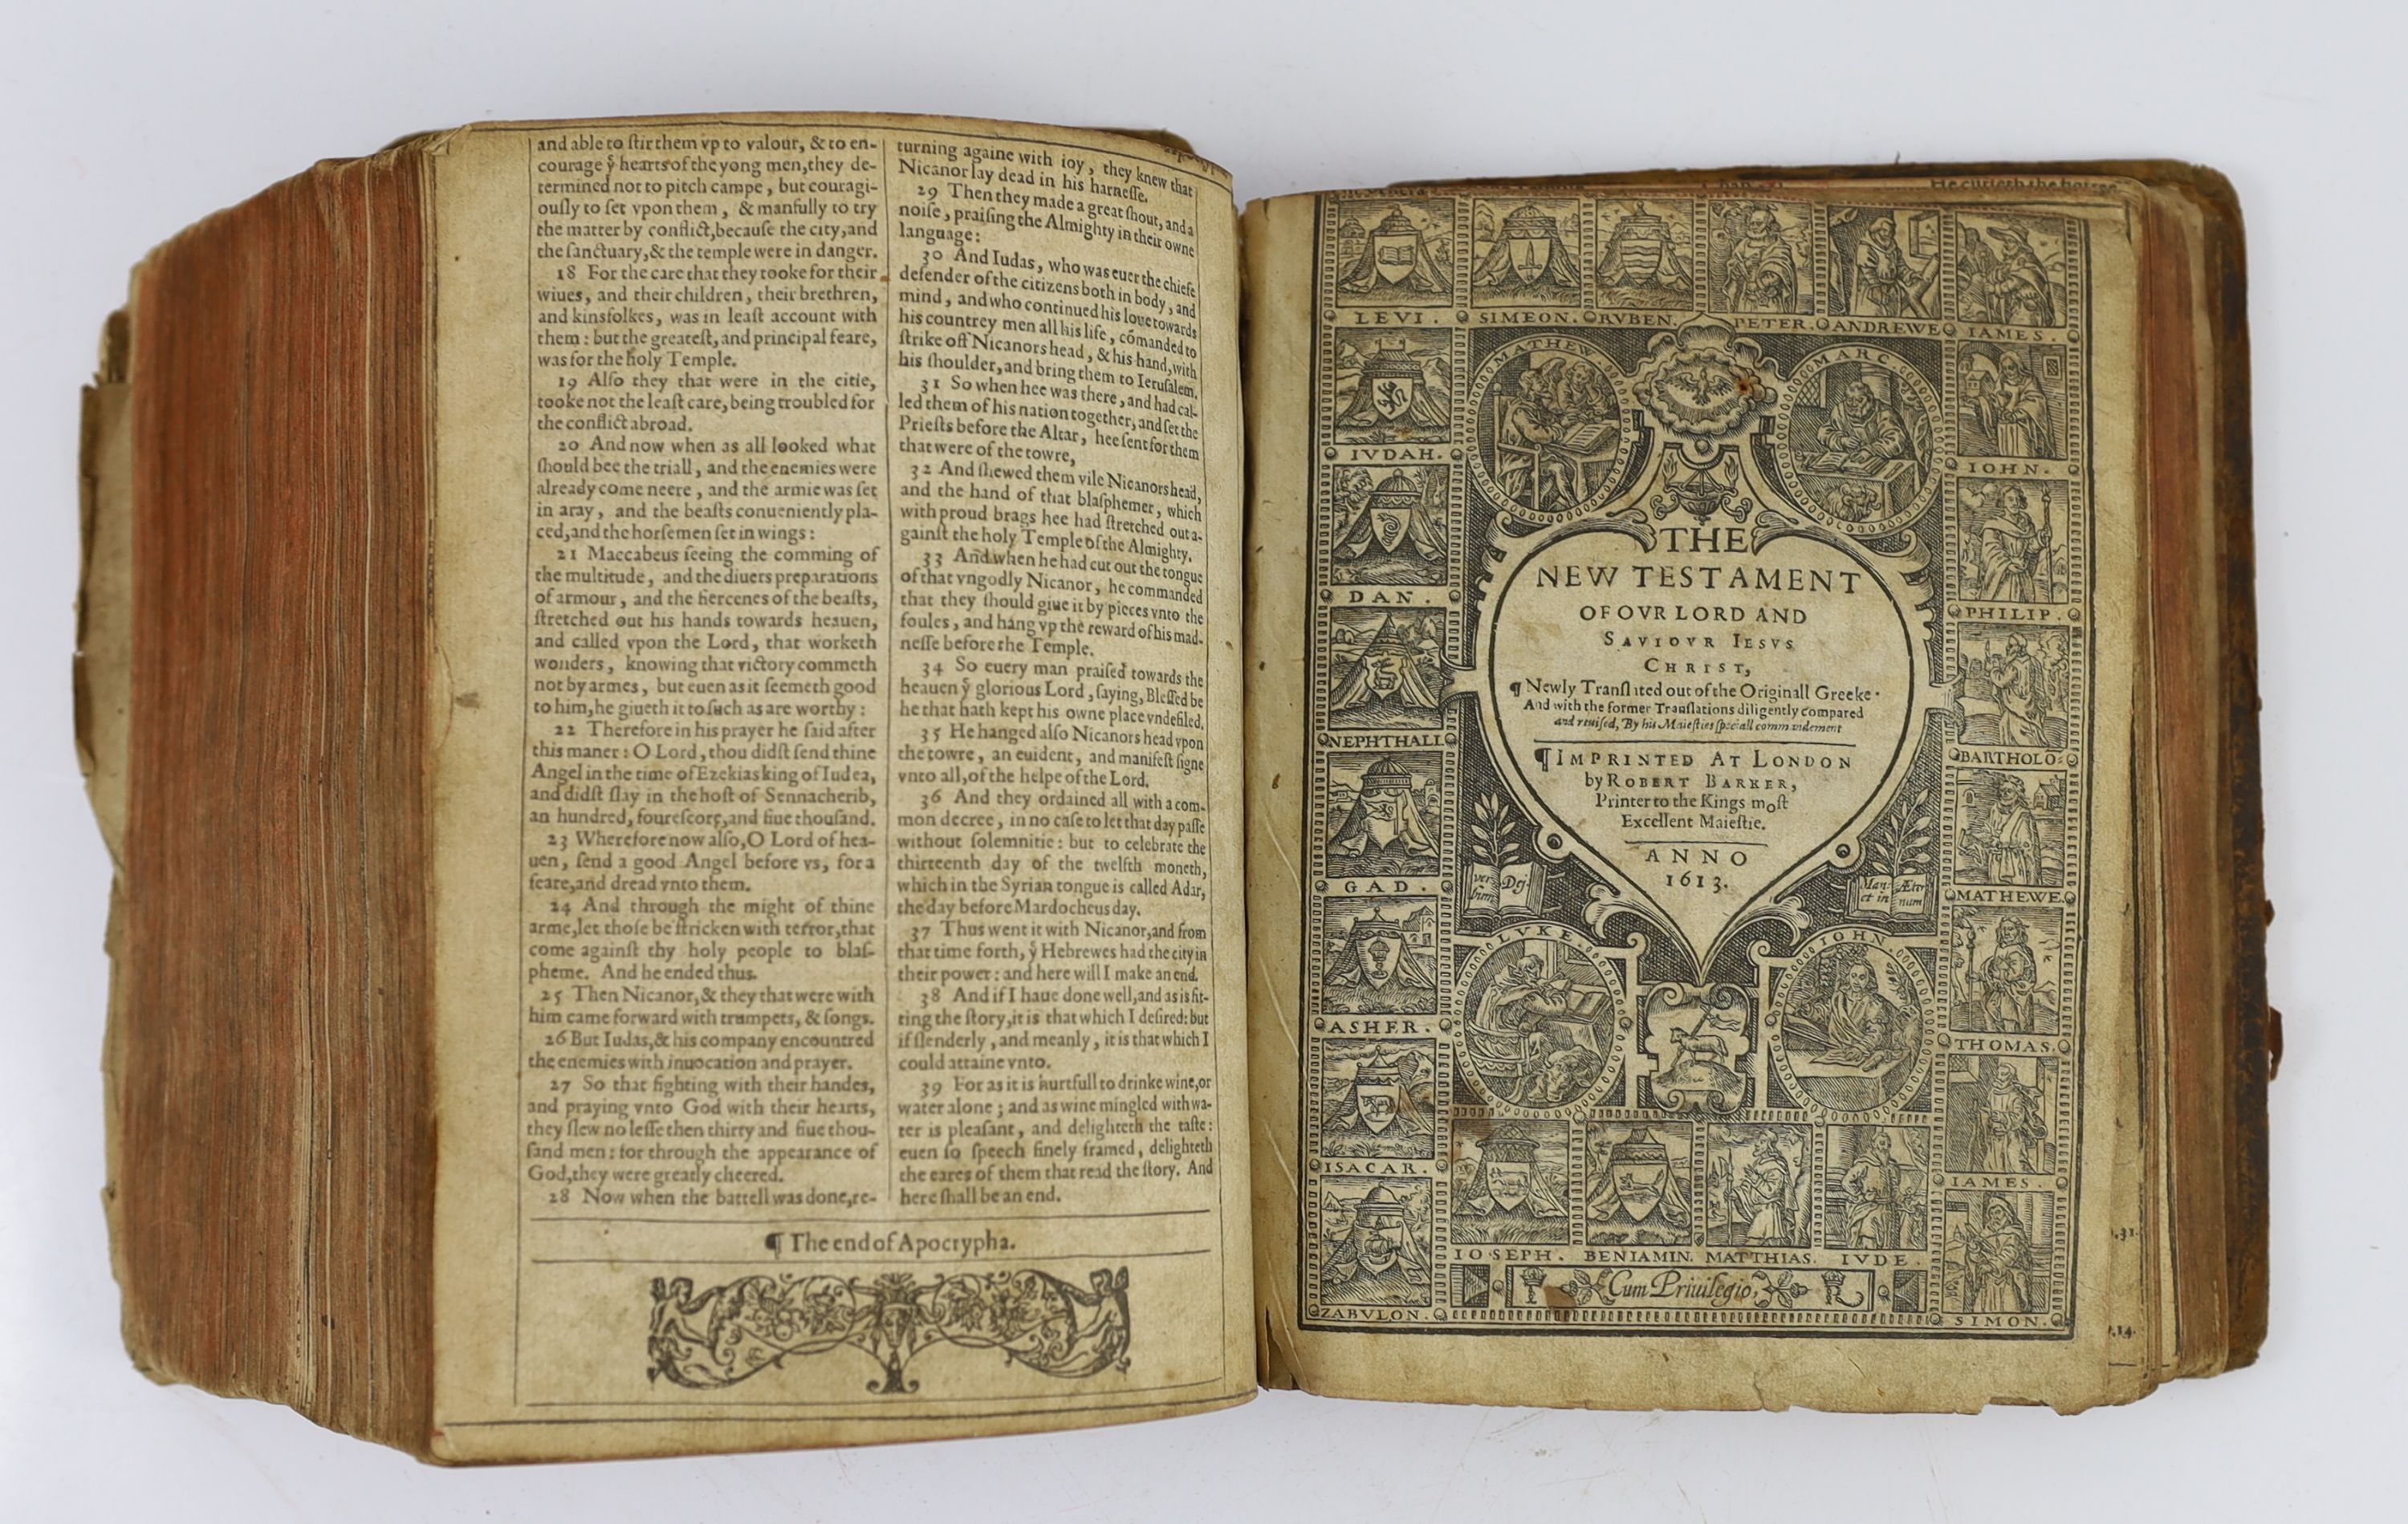 and able to ſtir them vp to valour, & to en-
courage yͤ hearts of the yong men, they de-
termined not to pitch campe, but couragi-
ouſly to ſet vpon them, & manfully to try
the matter by conflict, becauſe the city, and
the ſanctuary, & the temple were in danger.
18 For the care that they tooke for their
wiues, and their children, their brethren,
and kinsfolkes, was in leaſt account with
them: but the greateſt, and principal feare,
was for the holy Temple.
19 Alſo they that were in the citie,
tooke not the leaſt care, being troubled for
the conflict abroad.
20 And now when as all looked what
ſhould bee the triall, and the enemies were
already come neere, and the armie was ſet
in aray, and the beaſts conueniently pla-
ced, and the horſemen ſet in wings:
21 Maccabeus ſeeing the comming of
the multitude, and the diuers preparations
of armour, and the fiercenes of the beaſts,
ſtretched out his hands towards heauen,
and called vpon the Lord, that worketh
wonders, knowing that victory commeth
not by armes, but euen as it ſeemeth good
to him, he giueth it to ſuch as are worthy:
22 Therefore in his prayer he ſaid after
this maner: O Lord, thou didſt ſend thine
Angel in the time of Ezekias king of Iudea,
and didſt ſlay in the hoſt of Sennacherib,
an hundred, foureſcore, and fiue thouſand.
23 Wherefore now alſo, O Lord of hea-
uen, ſend a good Angel before vs, for a
feare, and dread vnto them.
24 And through the might of thine
arme, let thoſe be ſtricken with terror, that
come againſt thy holy people to blaſ-
pheme. And he ended thus.
25 Then Nicanor, & they that were with
him came forward with trumpets, & ſongs.
26 But Iudas, & his company encountred
the enemies with inuocation and prayer.
27 So that fighting with their handes,
and praying vnto God with their hearts,
they ſlew no leſſe then thirty and fiue thou-
ſand men: for through the appearance of
God, they were greatly cheered.
28 Now when the battell was done, re-
turning againe with ioy, they knew that
Nicanor lay dead in his harneſſe.
29 Then they made a great ſhout, and a
noiſe, praiſing the Almighty in their owne
language:
30 And Iudas, who was euer the chiefe
defender of the citizens both in body, and
mind, and who continued his loue towards
his countrey men all his life, cōmanded to
ſtrike off Nicanors head, & his hand, with
his ſhoulder, and bring them to Ieruſalem.
31 So when hee was there, and had cal-
led them of his nation together, and ſet the
Prieſts before the Altar, hee ſent for them
that were of the towre,
32 And ſhewed them vile Nicanors head,
and the hand of that blaſphemer, which
with proud brags hee had ſtretched out a-
gainſt the holy Temple of the Almighty.
33 And when he had cut out the tongue
of that vngodly Nicanor, he commanded
that they ſhould giue it by pieces vnto the
foules, and hang vp the reward of his mad-
neſſe before the Temple.
34 So euery man praiſed towards the
heauen yͤ glorious Lord, ſaying, Bleſſed be
he that hath kept his owne place vndefiled.
35 He hanged alſo Nicanors head vpon
the towre, an euident, and manifeſt ſigne
vnto all, of the helpe of the Lord.
36 And they ordained all with a com-
mon decree, in no caſe to let that day paſſe
without ſolemnitie: but to celebrate the
thirteenth day of the twelfth moneth,
which in the Syrian tongue is called Adar,
the day before Mardocheus day.
37 Thus went it with Nicanor, and from
that time forth, yͤ Hebrewes had the city in
their power: and here will I make an end.
38 And if I haue done well, and as is fit-
ting the ſtory, it is that which I deſired: but
if ſlenderly, and meanly, it is that which I
could attaine vnto.
39 For as it is hurtfull to drinke wine, or
water alone; and as wine mingled with wa-
ter is pleaſant, and delighteth the taſte:
euen ſo ſpeech finely framed, delighteth
the eares of them that read the ſtory. And
here ſhall be an end.
¶ The end of Apocrypha.
LEVI. SIMEON. RVBEN. PETER. ANDREWE IAMES.
MATHEW. MARC.
IVDAH. IOHN.
THE
NEW TESTAMENT
OF OVR LORD AND
SAVIOVR IESVS
CHRIST,
¶ Newly Tranſlated out of the Originall Greeke.
And with the former Tranſlations diligently compared
and reuiſed, By his Maieſties ſpeciall commandement
¶ IMPRINTED AT LONDON
by ROBERT BARKER,
Printer to the Kings moſt
Excellent Maieſtie.
ANNO
1613.
DAN. PHILIP.
NEPHTHALI BARTHOLO:
GAD. MATHEWE.
verbum Dei
Manet in Æternum
LVKE. IOHN.
ASHER. THOMAS.
ISACAR. IAMES.
IOSEPH. BENIAMIN. MATTHIAS. IVDE.
I Cum Priuilegio, R
ZABVLON. SIMON.
He curſeth the